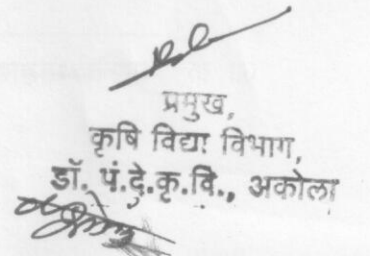 प्रमुख,
कृषि विद्या विभाग,
डॉ. पं.दे.कृ.वि., अकोला